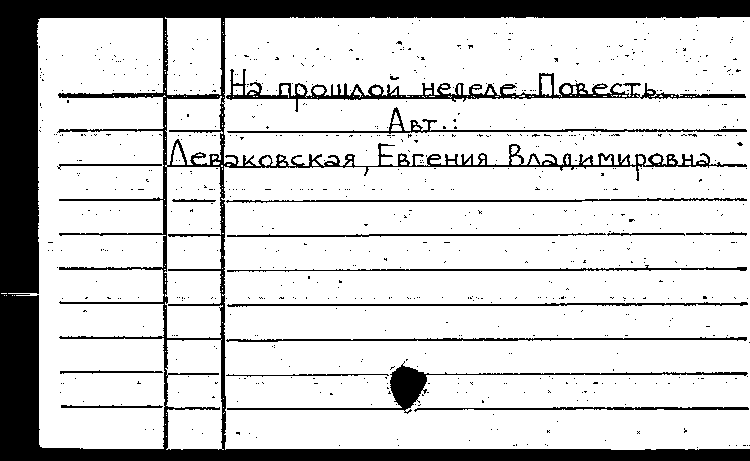 На прошлой неделе. Повесть.
Авт.:
Леваковская, Евгения Владимировна.